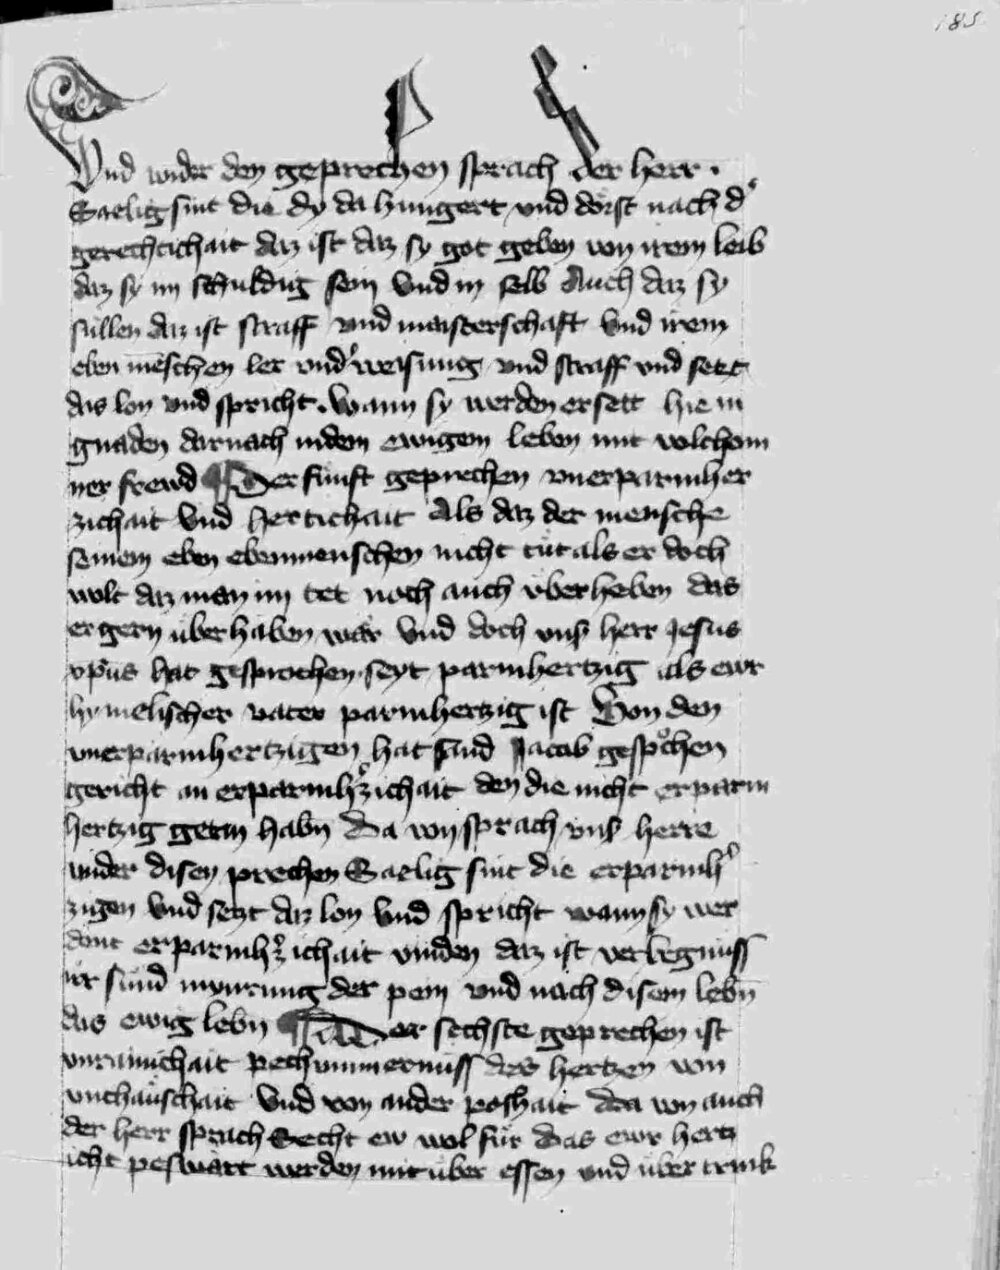 185
Und wider den geprechen sprach der herr .
Saelig sint die dy da hungert vnd dorst nach d'
gerechtichait daz ist daz sy got geben von irem leib
daz sy im schuldig sein Vnd in selb Auch daz sy
sullen daz ist straff vnd maisterschaft Vnd irem
eben mēschen ler vnd vnderweisung vnd straff vnd setzt
das lon vnd spricht . Wann sy werden ersett hie in
gnaden darnach in dem ewigem leben mit volchom
ner frewd Der funft geprechen vnerparmher
zichait Vnd hertichait Als daz der mensche
seinem eben ebenmenschen nicht tut als er doch
wolt daz man im tet noch auch vberheben das
er gern überhaben wär Vnd doch vnser herr Jesus
xp̄us hat gesprochen seyt parmhertzig als ewr
hymelischer vater parmhertzig ist Von den
vnerparmhertzigen hat sand Jacob gesprochen
gericht an erparmh'zichait den die nicht erparm
hertzig getan habn̄ Da von sprach vns' herre
wider disen prechen Saelig sint die erparmh'
zigen Vnd setzt daz lon Vnd spricht wann sy wer
dent erparmh'zichait vinden daz ist verlegnuss
ir sünd mynrung der pein vnd nach disem lebn̄
das ewig lebn̄ Der sechste geprechen ist
vnrainichait pechummernuss des hertzen von
vnchäuschait Vnd von ander poshait da von auch
der herr sprach Secht ew wol für das ewr hertz
icht peswärt werden mit über essen vnd über trink